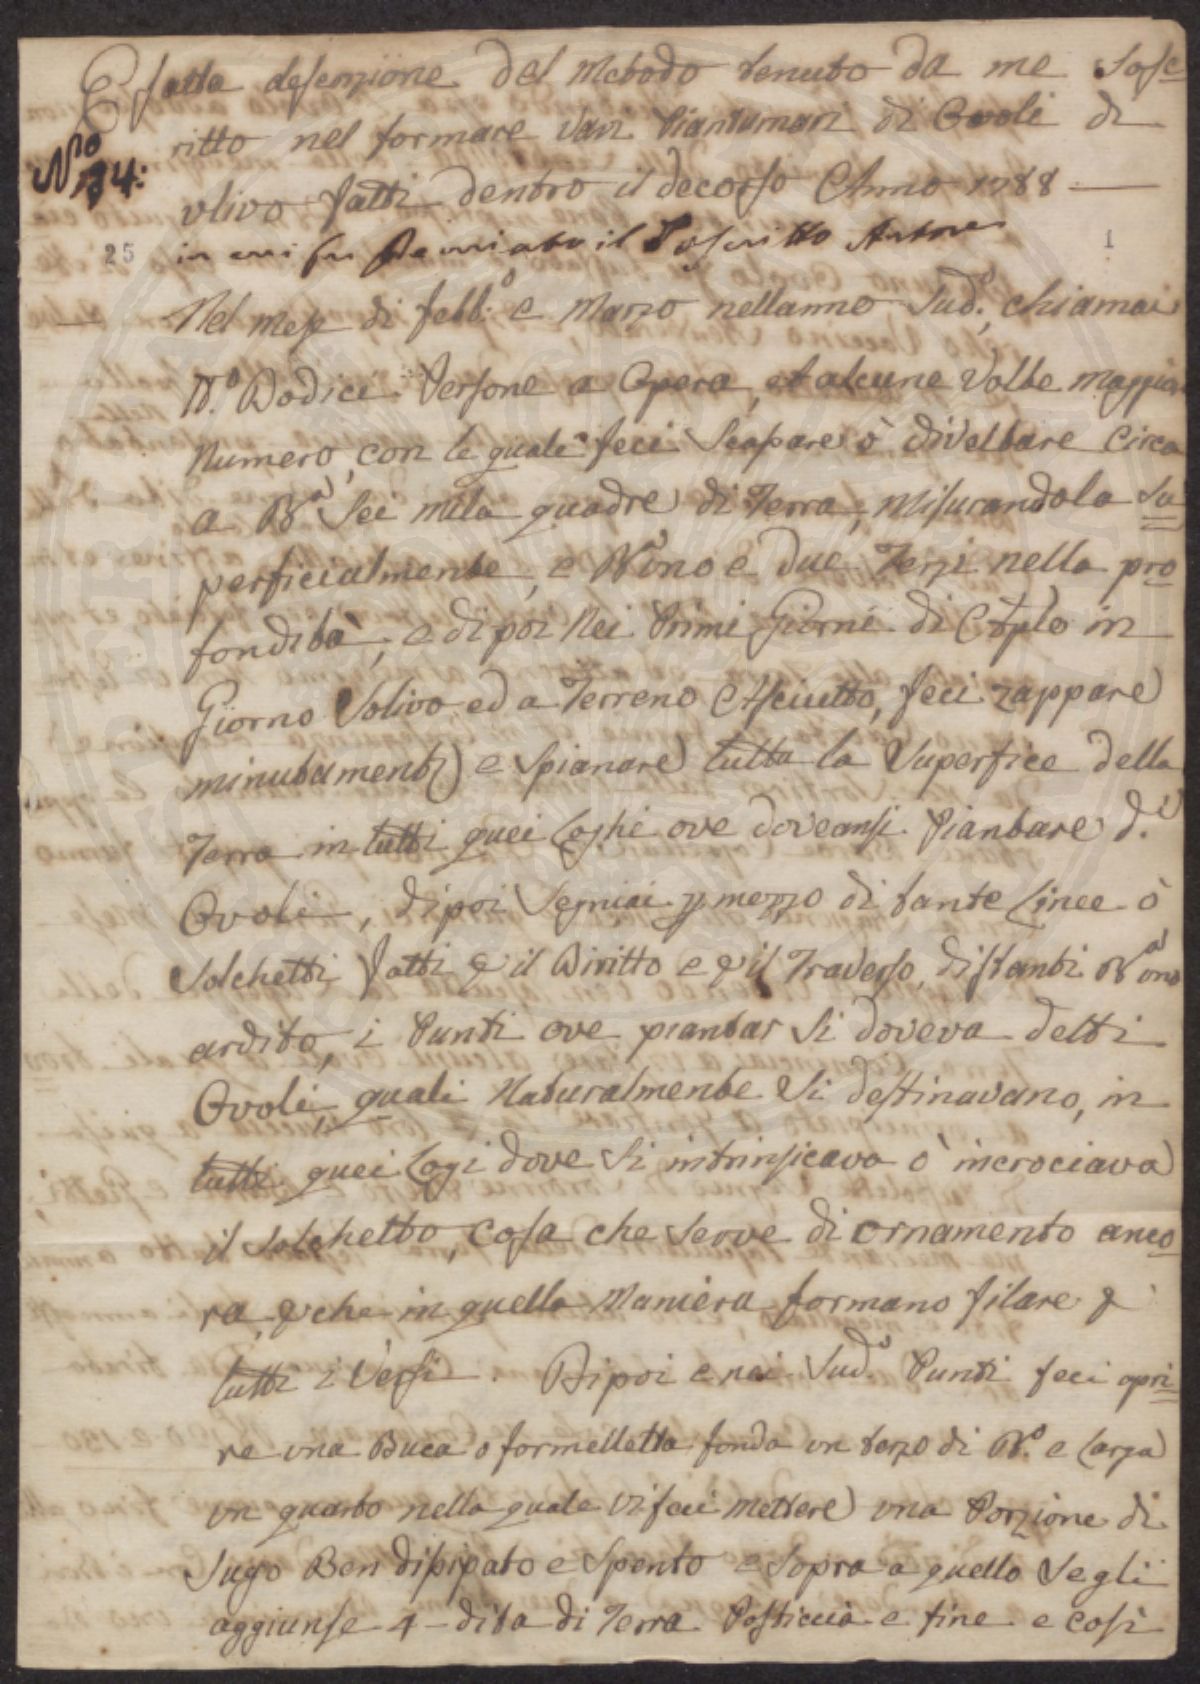 Esatta descrizione del Metodo tenuto da me Sosc
ritto nel formare varj Piantumari di Ovoli di
No 134:
vlivo fatti dentro il decorso Anno 1788
in cui fu Premiato il Soscritto Autore
25
1
Nel mese di febb:o e Marzo nellanno Sud.o, chiamai
N.o Dodici Persone a Opera, et alcune Volte maggior
Numero, con le quali feci Scapare ò divelbare Circa
a Ba Sei mila quadre di Terra, Misurandola Su
perficialmente, e Ba vno e due Terzi nella pro
fondità, e di poi Nei Primi Giorni di Aple in
Giorno Solivo ed a Terreno Asciutto, feci zappare
minutamente e Spianare tutta la Superfice della
Terra in tutti quei Loghi ove doveansi Piantare d.i
Ovoli, dipoi Segniai p mezzo di tante Linee ò
Solchetti fatti p il Diritto e p il Traverso, distanti Ba vno
ardito, i Punti ove piantar Si doveva detti
Ovoli, quali Naturalmente Si destinavano, in
tutti quei Logi dove Si intrinsicava ò incrociava
il Solchetto, Cosa che Serve di ornamento anco
ra, p che in quella Maniera formano filare p
tutti i Versi. Dipoi e nei Sud.i Punti feci apri
re vna Buca o formelletta fonda vn terzo di Bo. e Larga
vn quarto nella quale vi feci Mettere vna Porzione di
Sugo Ben disipato e Spento e Sopra a quello Segli
aggiunse 4 dita di Terra Posticcia e fine e così